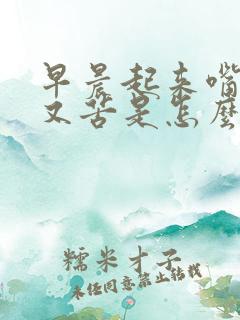 早晨起来嘴
又苦是怎麽
糯米才子
未经同意禁止转载